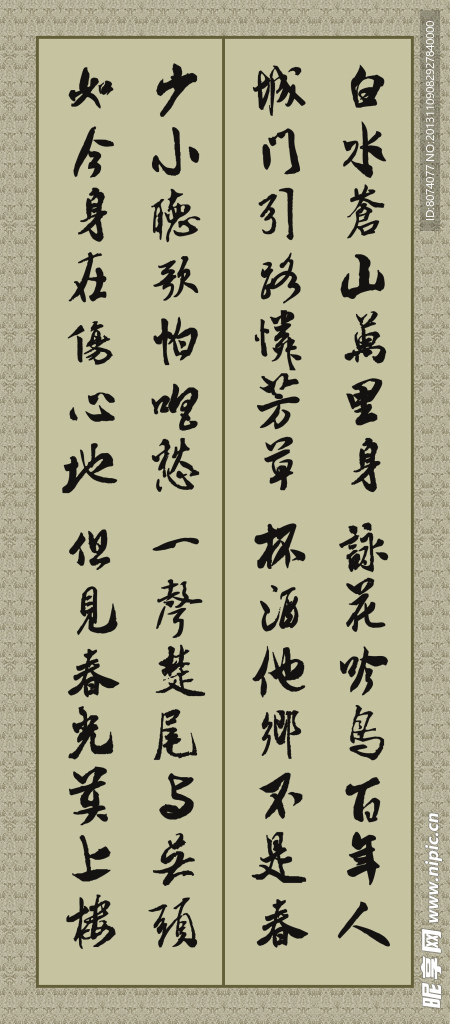 白水蒼山萬里身 詠花吟鳥百年人
城門引路憐芳草 杯酒他鄉不是春
少小聽歌怕嗌愁 一聲楚尾与吳頭
如今身在傷心地 但見春光莫上樓
ID:8074077 NO:20131109082927840000
昵享网 www.nipic.cn